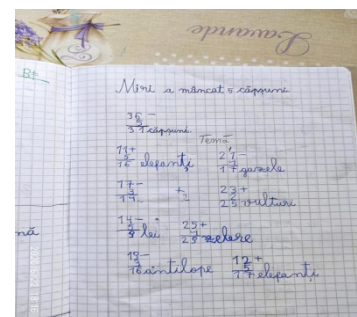 Lavande
B+
Mimi a mâncat 5 căpșuni
36 -
5
31 căpșuni
Temă
11 +
5
16 elefanți
21 -
4
17 gazele
17 -
3
14
23 +
2
25 vulturi
14 -
lei
25 +
zebre
19 -
3
16 antilope
12 +
5
17 elefanți
nă